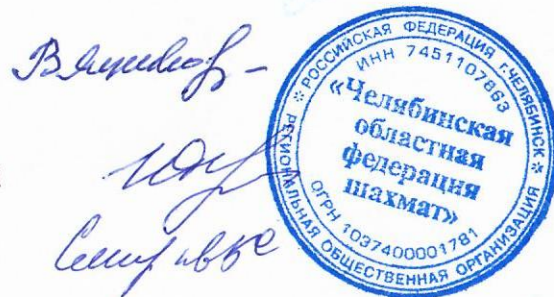 РОССИЙСКАЯ ФЕДЕРАЦИЯ Г.ЧЕЛЯБИНСК
РЕГИОНАЛЬНАЯ ОБЩЕСТВЕННАЯ ОРГАНИЗАЦИЯ
ИНН 7451107863
«Челябинская
областная
федерация
шахмат»
ОГРН 1037400001781